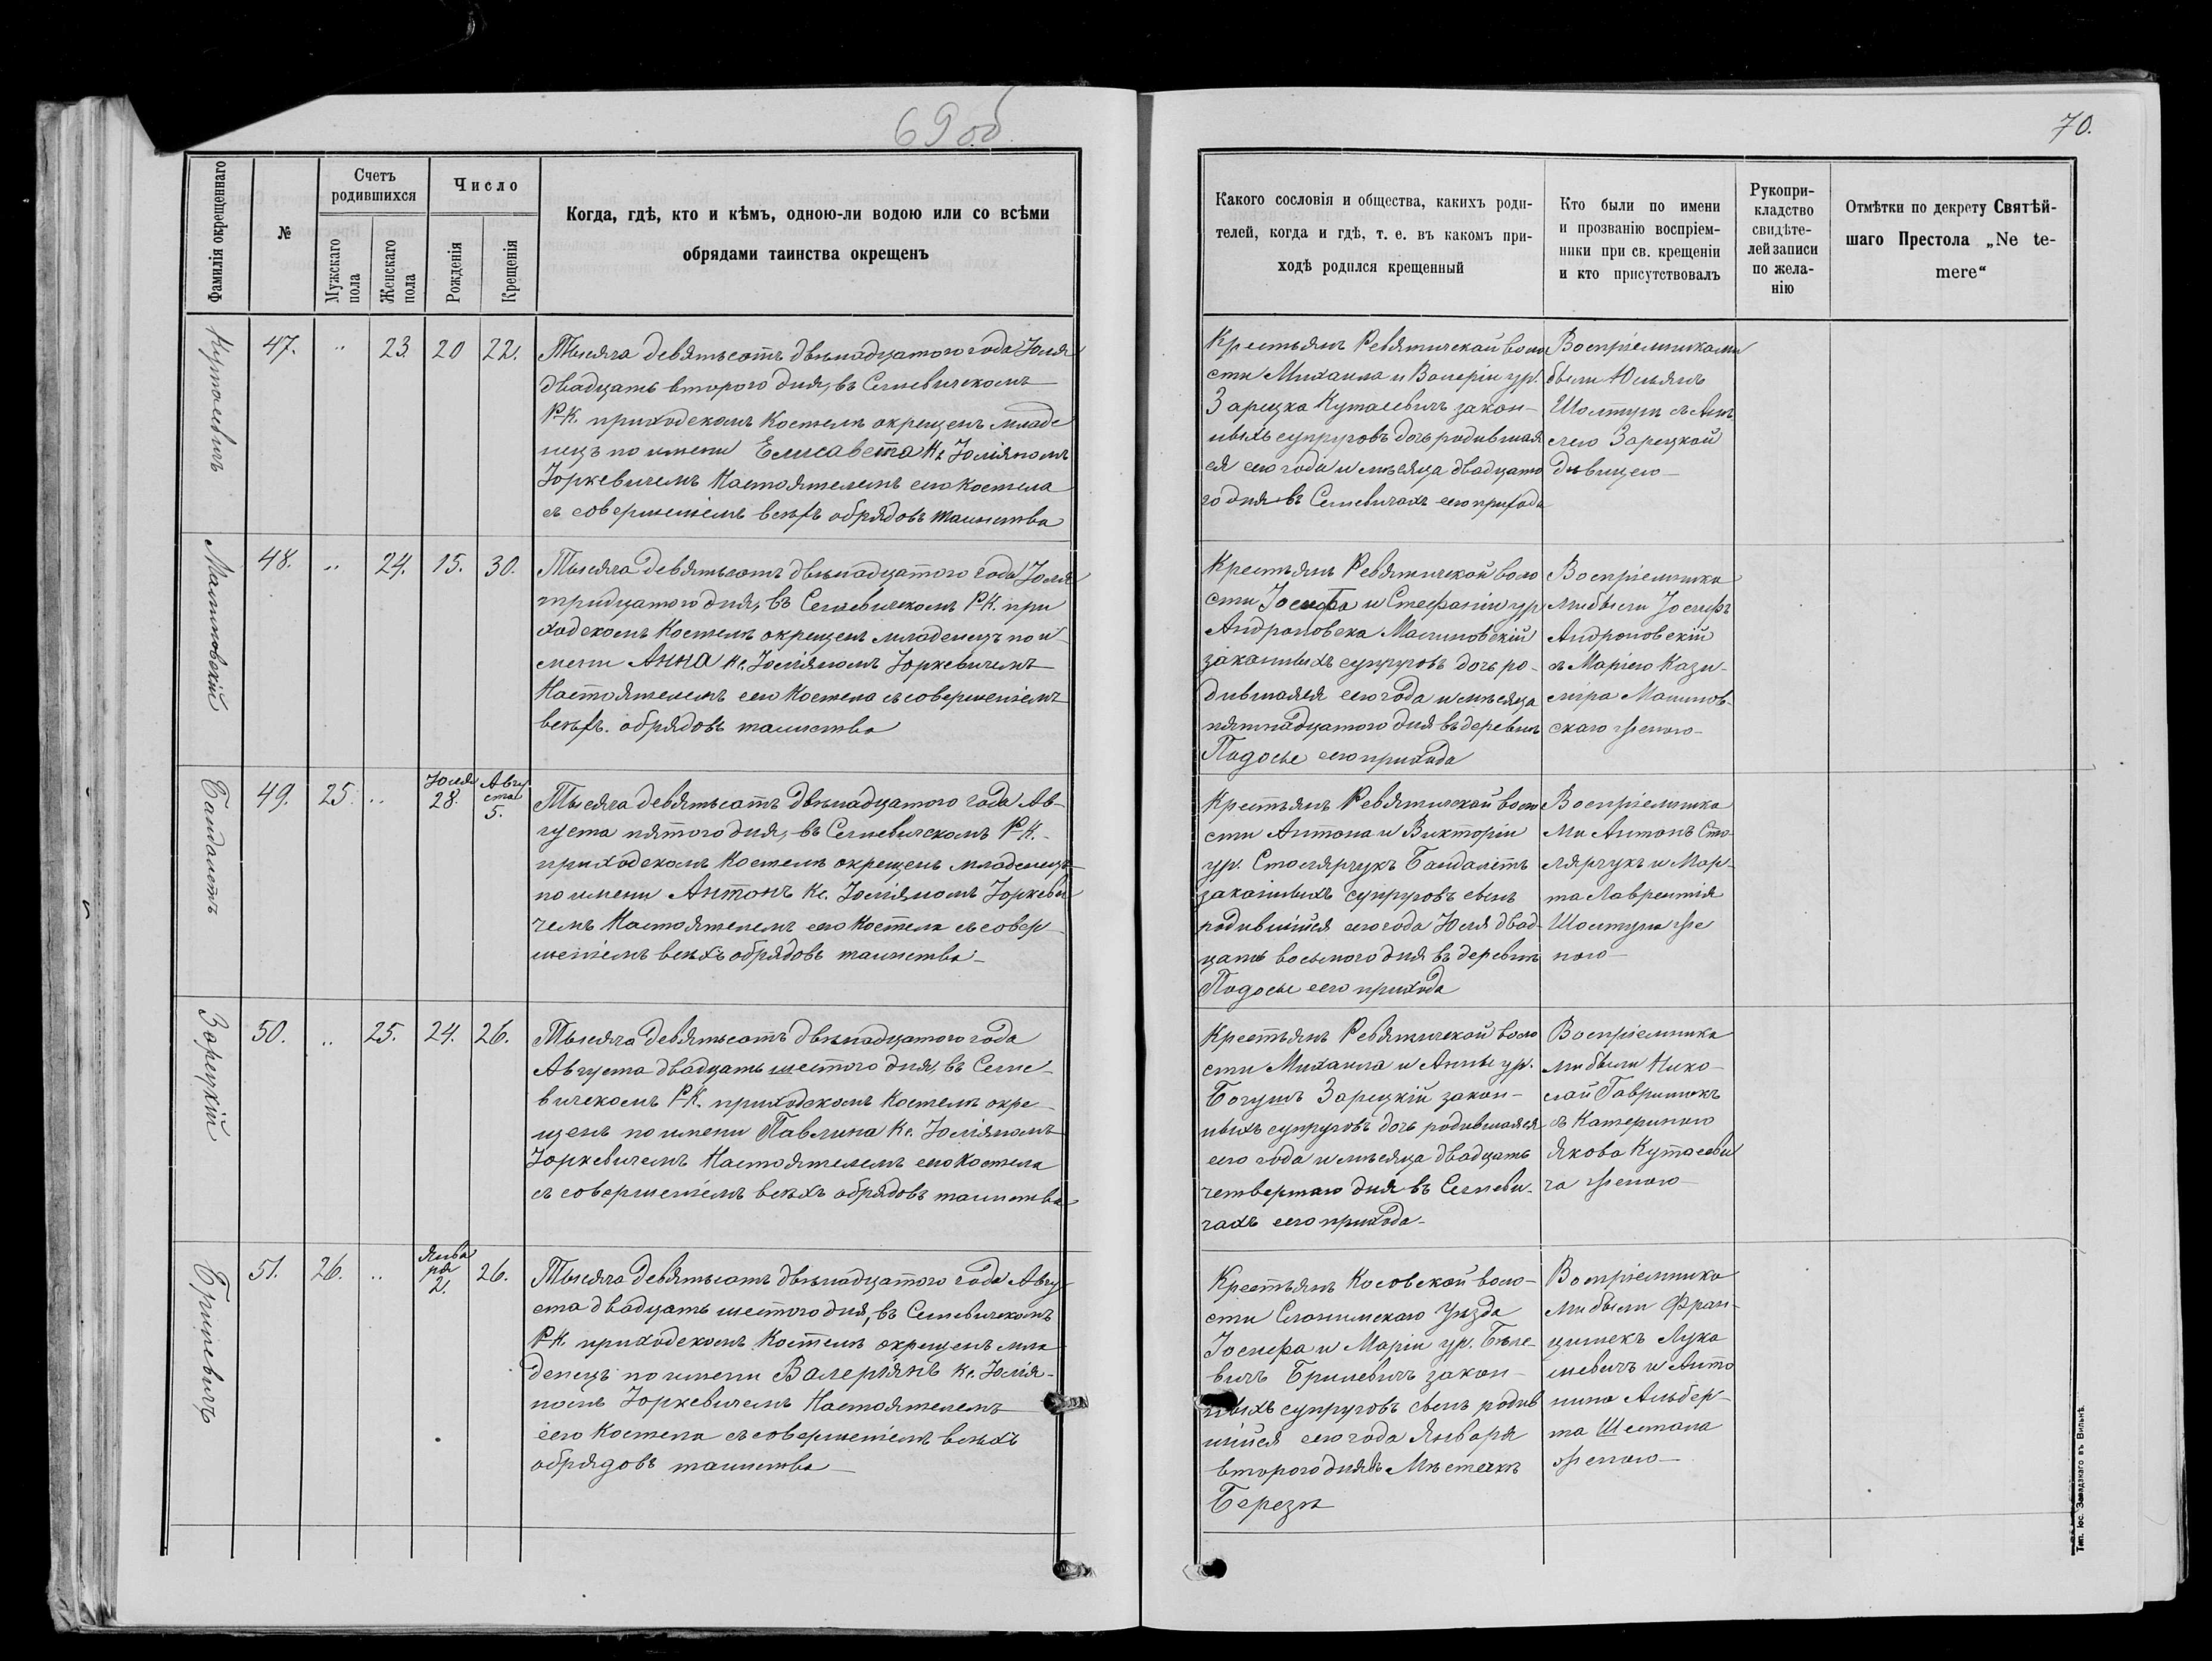 69об.
Фамилія окрещеннаго
№
Счетъ родившихся
Мужскаго пола
Женскаго пола
Число
Рожденія
Крещенія
Когда, гдѣ, кто и кѣмъ, одною-ли водою или со всѣми
обрядами таинства окрещенъ
Кутасевичъ
47. „ 23. 20 22.
Тысяча девятьсотъ двѣнадцатого года Іюля
двадцать второго дня, въ Сегневичскомъ
Р-К. приходскомъ Костелѣ окрещенъ младе
нецъ по имени Елисавета Кс. Юліяномъ
Юркевичемъ Настоятелемъ сего Костела
съ совершеніемъ всѣхъ обрядовъ таинства
Малиновскій
48. „ 24. 15. 30.
Тысяча девятьсотъ двѣнадцатого года Іюля
тридцатого дня, въ Сегневичскомъ Р-К. при
ходскомъ Костелѣ окрещенъ младенецъ по и
мени Анна Кс. Юліяномъ Юркевичемъ
Настоятелемъ сего Костела съ совершеніемъ
всѣхъ. обрядовъ таинства
Бандалетъ
49. 25. „ Іюля 28. Авгу ста 5.
Тысяча девятьсотъ двѣнадцатого года Ав-
густа пятого дня, въ Сегневичскомъ Р-К.
приходскомъ Костелѣ окрещенъ младенецъ
по имени Антонъ Кс. Юліяномъ Юркеви
чемъ Настоятелемъ сего Костела съ совер
шеніемъ всѣхъ обрядовъ таинства
Зарецкій
50. „ 25. 24. 26.
Тысяча девятьсотъ двѣнадцатого года
Августа двадцать шестого дня, въ Сегне-
вичскомъ Р-К. приходскомъ Костелѣ окре
щенъ по имени Павлина Кс. Юліяномъ
Юркевичемъ Настоятелемъ сего Костела
съ совершеніемъ всѣхъ обрядовъ таинства
Бриневичъ
51. 26. „ Янва ря 2. 26.
Тысяча девятьсотъ двѣнадцатого года Авгу
ста двадцать шестого дня, въ Сегневичскомъ
Р-К. приходскомъ Костелѣ окрещенъ мла
денецъ по имени Валеріянъ Кс. Юлія-
номъ Юркевичемъ Настоятелемъ
сего Костела съ совершеніемъ всѣхъ
обрядовъ таинства
70.
Какого сословія и общества, какихъ роди-
телей, когда и гдѣ, т. е. въ какомъ при-
ходѣ родился крещенный
Кто были по имени
и прозванію воспріем-
ники при св. крещеніи
и кто присутствовалъ
Рукопри-
кладство
свидѣте-
лей записи
по жела-
нію
Отмѣтки по декрету Святѣй-
шаго Престола „Ne te-
mere“
Крестьянъ Ревятичской воло
сти Михаила и Валеріи ур.
Зарецка Кутасевичъ закон-
ныхъ супруговъ дочь родившая
ся сего года и мѣсяца двадцато
го дня въ Сегневичахъ сего прихода
Воспріемниками
были Юльянъ
Шостукъ съ Анѣ
лею Зарецкой
дѣвицею
Крестьянъ Ревятичской воло
сти Іосифа и Стефаніи ур
Андроновска Малиновскій
законныхъ супруговъ дочь ро-
дившаяся сего года и мѣсяца
пятнадцатого дня въ деревнѣ
Подосье сего прихода
Воспріемника
ми были Іосифъ
Андроновскій
съ Маріею Кази-
міра Малинов-
скаго женою
Крестьянъ Ревятичской воло
сти Антона и Викторіи
ур. Столярчукъ Бандалетъ
законныхъ супруговъ сынъ
родившійся сего года Іюля двад-
цать восьмого дня въ деревнѣ
Подосье сего прихода
Воспріемника
ми Антонъ Сто-
лярчукъ и Мар-
та Лаврентія
Шостука же
ною
Крестьянъ Ревятичской воло
сти Михаила и Анны ур.
Богушъ Зарецкій закон-
ныхъ супруговъ дочь родившаяся
сего года и мѣсяца двадцать
четвертаго дня въ Сегневи-
чахъ сего прихода
Воспріемника
ми были Нико-
лай Гавринюкъ
съ Катериною
Якова Кутасеви
ча женою
Крестьянъ Косовской воло-
сти Слонимскаго Уѣзда
Іосифа и Маріи ур. Бѣле-
вичъ Бриневичъ закон-
ныхъ супруговъ сынъ родив
шійся сего года Января
второго дня въ Мѣстечкѣ
Березѣ
Воспріемника
ми были Фран-
цишекъ Лука
шевичъ и Анто
нина Альбер-
та Шестака
женою
Тип. Іос. Завадзкаго въ Вильнѣ.